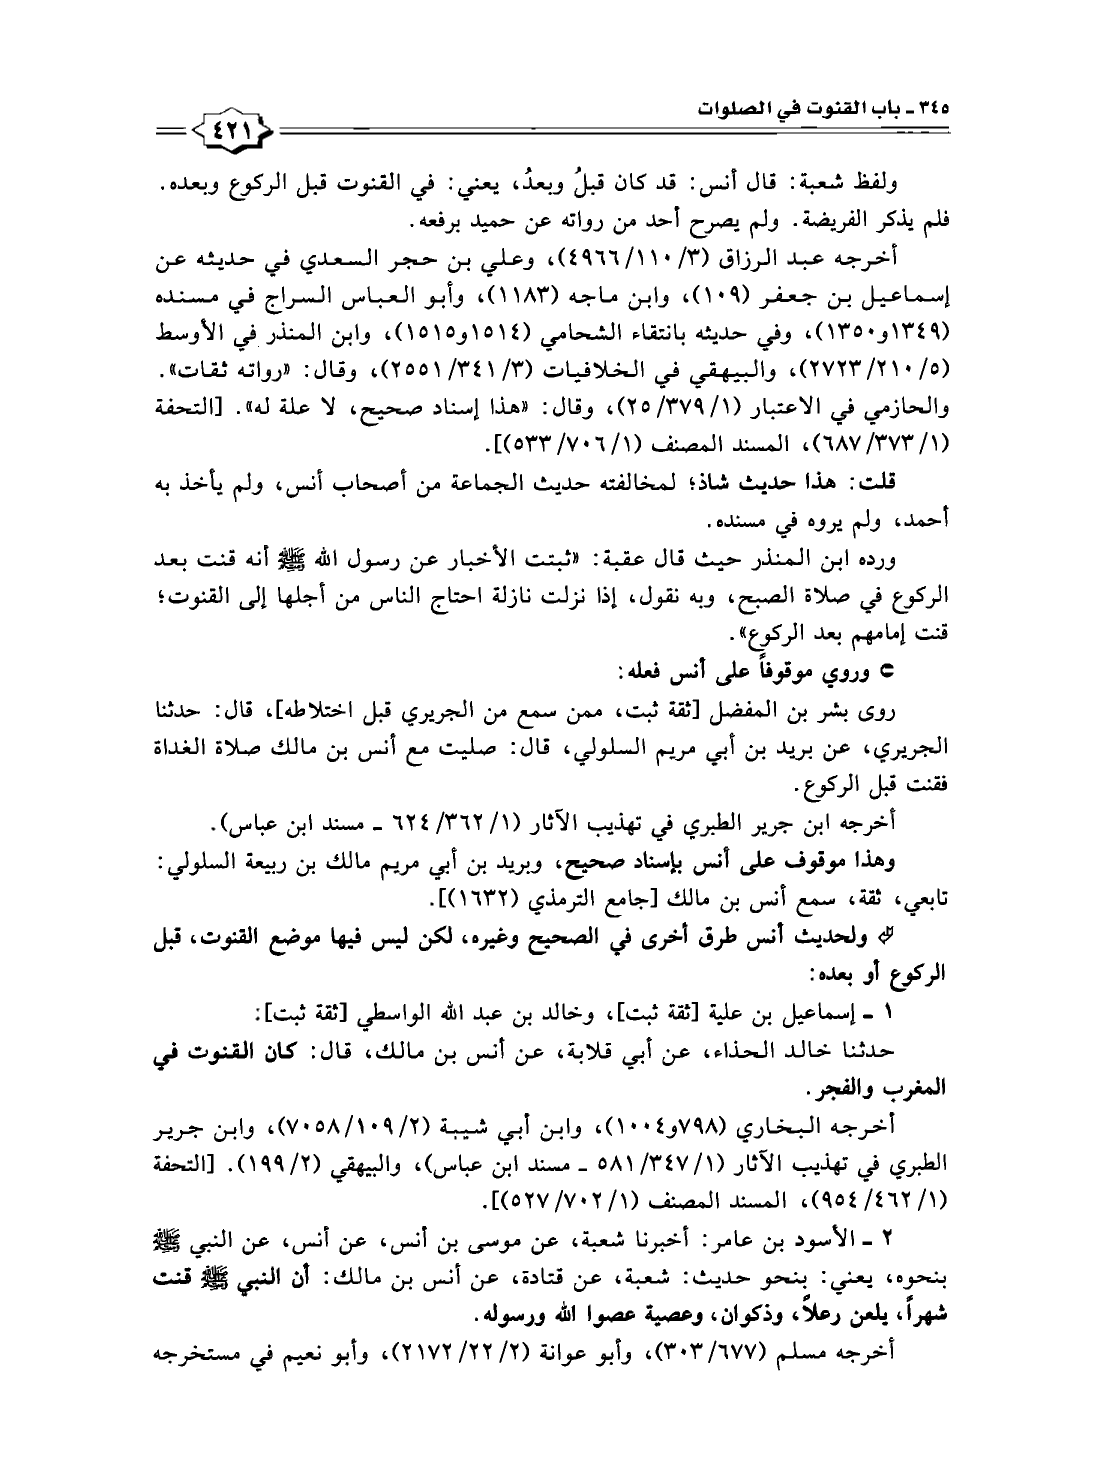 ٣٤٥ ـ باب القنوت في الصلوات
٤٢١
ولفظ شعبة: قال أنس: قد كان قبلُ وبعدُ، يعني: في القنوت قبل الركوع وبعده.
فلم يذكر الفريضة. ولم يصرح أحد من رواته عن حميد برفعه.
أخرجه عبد الرزاق (٣/ ١١٠/ ٤٩٦٦)، وعلي بن حجر السعدي في حديثه عن
إسماعيل بن جعفر (١٠٩)، وابن ماجه (١١٨٣)، وأبو العباس السراج في مسنده
(١٣٤٩و١٣٥٠)، وفي حديثه بانتقاء الشحامي (١٥١٤و١٥١٥)، وابن المنذر في الأوسط
(٥/ ٢١٠/ ٢٧٢٣)، والبيهقي في الخلافيات (٣/ ٣٤١/ ٢٥٥١)، وقال: «رواته ثقات».
والحازمي في الاعتبار (١/ ٣٧٩/ ٢٥)، وقال: «هذا إسناد صحيح، لا علة له». [التحفة
(١/ ٣٧٣/ ٦٨٧)، المسند المصنف (١/ ٧٠٦/ ٥٣٣)].
قلت: هذا حديث شاذ؛ لمخالفته حديث الجماعة من أصحاب أنس، ولم يأخذ به
أحمد، ولم يروه في مسنده.
ورده ابن المنذر حيث قال عقبة: «ثبتت الأخبار عن رسول الله ﷺ أنه قنت بعد
الركوع في صلاة الصبح، وبه نقول، إذا نزلت نازلة احتاج الناس من أجلها إلى القنوت؛
قنت إمامهم بعد الركوع».
⊃ وروي موقوفاً على أنس فعله:
روى بشر بن المفضل [ثقة ثبت، ممن سمع من الجريري قبل اختلاطه]، قال: حدثنا
الجريري، عن بريد بن أبي مريم السلولي، قال: صليت مع أنس بن مالك صلاة الغداة
فقنت قبل الركوع.
أخرجه ابن جرير الطبري في تهذيب الآثار (١/ ٣٦٢/ ٦٢٤ ـ مسند ابن عباس).
وهذا موقوف على أنس بإسناد صحيح، وبريد بن أبي مريم مالك بن ربيعة السلولي:
تابعي، ثقة، سمع أنس بن مالك [جامع الترمذي (١٦٣٢)].
ولحديث أنس طرق أخرى في الصحيح وغيره، لكن ليس فيها موضع القنوت، قبل
الركوع أو بعده:
١ ـ إسماعيل بن علية [ثقة ثبت]، وخالد بن عبد الله الواسطي [ثقة ثبت]:
حدثنا خالد الحذاء، عن أبي قلابة، عن أنس بن مالك، قال: كان القنوت في
المغرب والفجر.
أخرجه البخاري (٧٩٨و١٠٠٤)، وابن أبي شيبة (٢/ ١٠٩/ ٧٠٥٨)، وابن جرير
الطبري في تهذيب الآثار (١/ ٣٤٧/ ٥٨١ ـ مسند ابن عباس)، والبيهقي (٢/ ١٩٩). [التحفة
(١/ ٤٦٢/ ٩٥٤)، المسند المصنف (١/ ٧٠٢/ ٥٢٧)].
٢ ـ الأسود بن عامر: أخبرنا شعبة، عن موسى بن أنس، عن أنس، عن النبي ﷺ
بنحوه، يعني: بنحو حديث: شعبة، عن قتادة، عن أنس بن مالك: أن النبي ﷺ قنت
شهراً، يلعن رعلاً، وذكوان، وعصية عصوا الله ورسوله.
أخرجه مسلم (٦٧٧/ ٣٠٣)، وأبو عوانة (٢/ ٢٢/ ٢١٧٢)، وأبو نعيم في مستخرجه